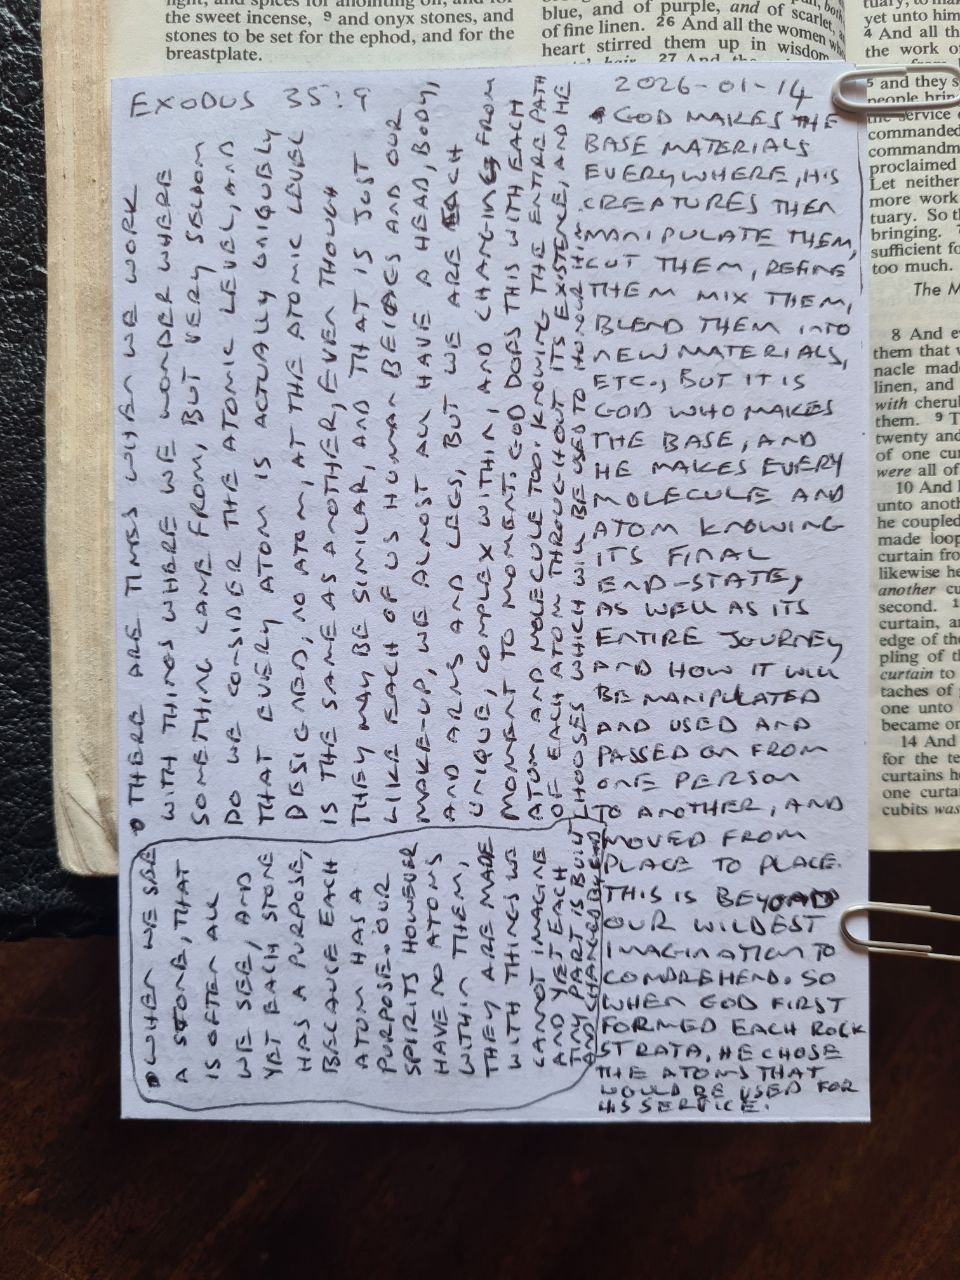 the sweet incense, ⁹ and onyx stones, and
stones to be set for the ephod, and for the
breastplate.
blue, and of purple, and of scarlet,
of fine linen. ²⁶ And all the women
heart stirred them up in wisdom
yet unto him
4 And all th
the work of
⁵ and they s
people bring
the service
commanded
commandm
proclaimed
Let neither
more work
tuary. So th
bringing.
sufficient fo
too much.
The M
8 And e
them that w
nacle made
linen, and
with cherub
them. ⁹ T
twenty and
of one cur
were all of
10 And
unto anoth
he coupled
made loop
curtain fro
likewise he
another cu
second.
curtain, an
edge of the
pling of th
curtain to
taches of
one unto
became on
14 And
for the te
curtains he
one curta
cubits was
EXODUS 35:9
2026-01-14
• THERE ARE TIMES WHEN WE WORK
WITH THINGS WHERE WE WONDER WHERE
SOMETHING CAME FROM, BUT VERY SELDOM
DO WE CONSIDER THE ATOMIC LEVEL, AND
THAT EVERY ATOM IS ACTUALLY UNIQUELY
DESIGNED, NO ATOM, AT THE ATOMIC LEVEL
IS THE SAME AS ANOTHER, EVEN THOUGH
THEY MAY BE SIMILAR, AND THAT IS JUST
LIKE EACH OF US HUMAN BEINGS AND OUR
MAKE-UP, WE ALMOST ALL HAVE A HEAD, BODY,
AND ARMS AND LEGS, BUT WE ARE EACH
UNIQUE, COMPLEX WITHIN, AND CHANGING FROM
MOMENT TO MOMENT. GOD DOES THIS WITH EACH
ATOM AND MOLECULE TOO. KNOWING THE ENTIRE PATH
OF EACH ATOM THROUGHOUT ITS EXISTENCE, AND HE
CHOOSES WHICH WILL BE USED TO HONOUR HIM.
• GOD MAKES THE
BASE MATERIALS
EVERYWHERE, HIS
CREATURES THEN
MANIPULATE THEM,
CUT THEM, REFINE
THEM MIX THEM,
BLEND THEM INTO
NEW MATERIALS,
ETC., BUT IT IS
GOD WHO MAKES
THE BASE, AND
HE MAKES EVERY
MOLECULE AND
ATOM KNOWING
ITS FINAL
END-STATE,
AS WELL AS ITS
ENTIRE JOURNEY
AND HOW IT WILL
BE MANIPULATED
AND USED AND
PASSED ON FROM
ONE PERSON
TO ANOTHER, AND
MOVED FROM
PLACE TO PLACE.
THIS IS BEYOND
OUR WILDEST
IMAGINATION TO
COMPREHEND. SO
WHEN GOD FIRST
FORMED EACH ROCK
STRATA, HE CHOSE
THE ATOMS THAT
WOULD BE USED FOR
HIS SERVICE.
• WHEN WE SEE
A STONE, THAT
IS OFTEN ALL
WE SEE, AND
YET EACH STONE
HAS A PURPOSE,
BECAUSE EACH
ATOM HAS A
PURPOSE. OUR
SPIRITS HOWEVER
HAVE NO ATOMS
WITHIN THEM,
THEY ARE MADE
WITH THINGS WE
CANNOT IMAGINE
AND YET EACH
TINY PART IS BUILT
AND CHANGED BY HIM